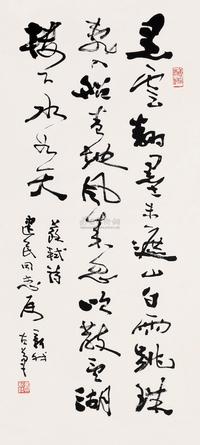 黑雲翻墨未遮山白雨跳珠
亂入船卷地風來忽吹散望湖
樓下水如天
蘇軾詩
建民同志属
新我左筆